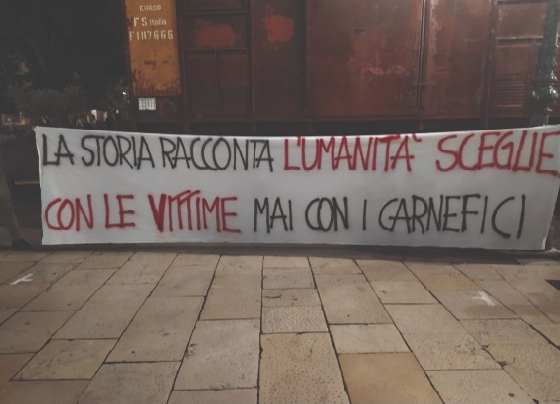 CARRO
F S Italia
F 1117666
LA STORIA RACCONTA L'UMANITA' SCEGLIE
CON LE VITTIME MAI CON I CARNEFICI